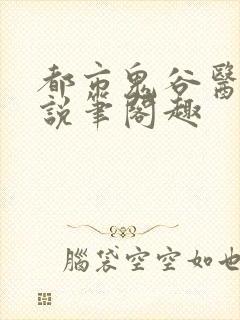 都市鬼谷醫
說筆閣趣
腦袋空空如也